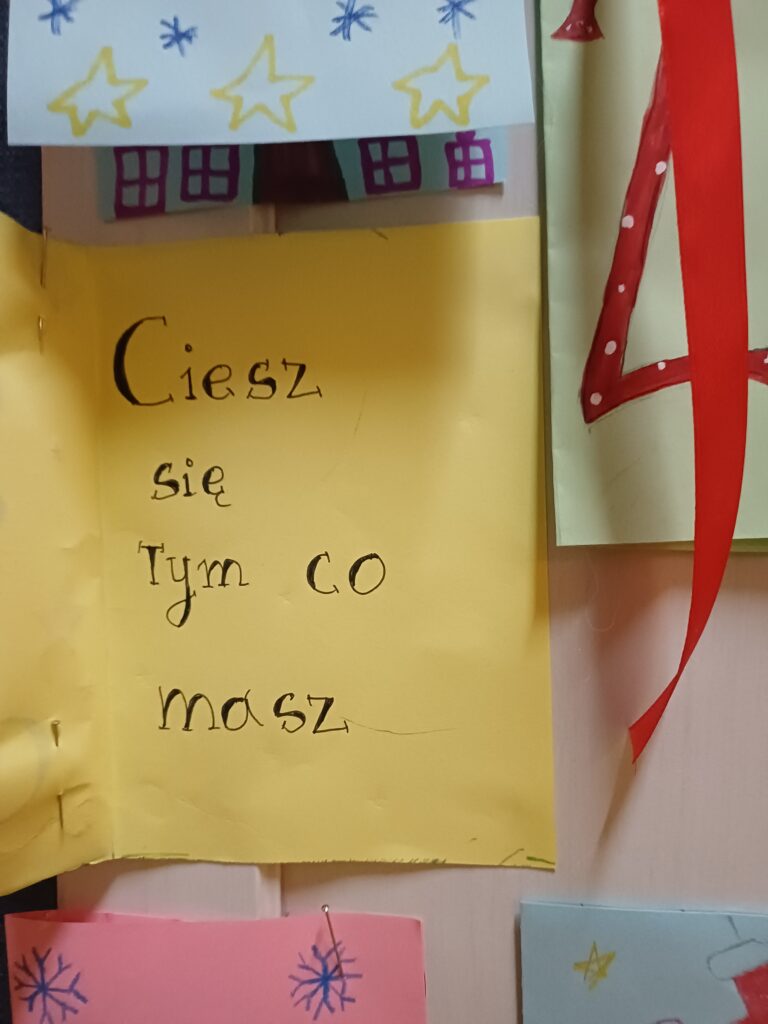 Ciesz
się
Tym co
masz
4